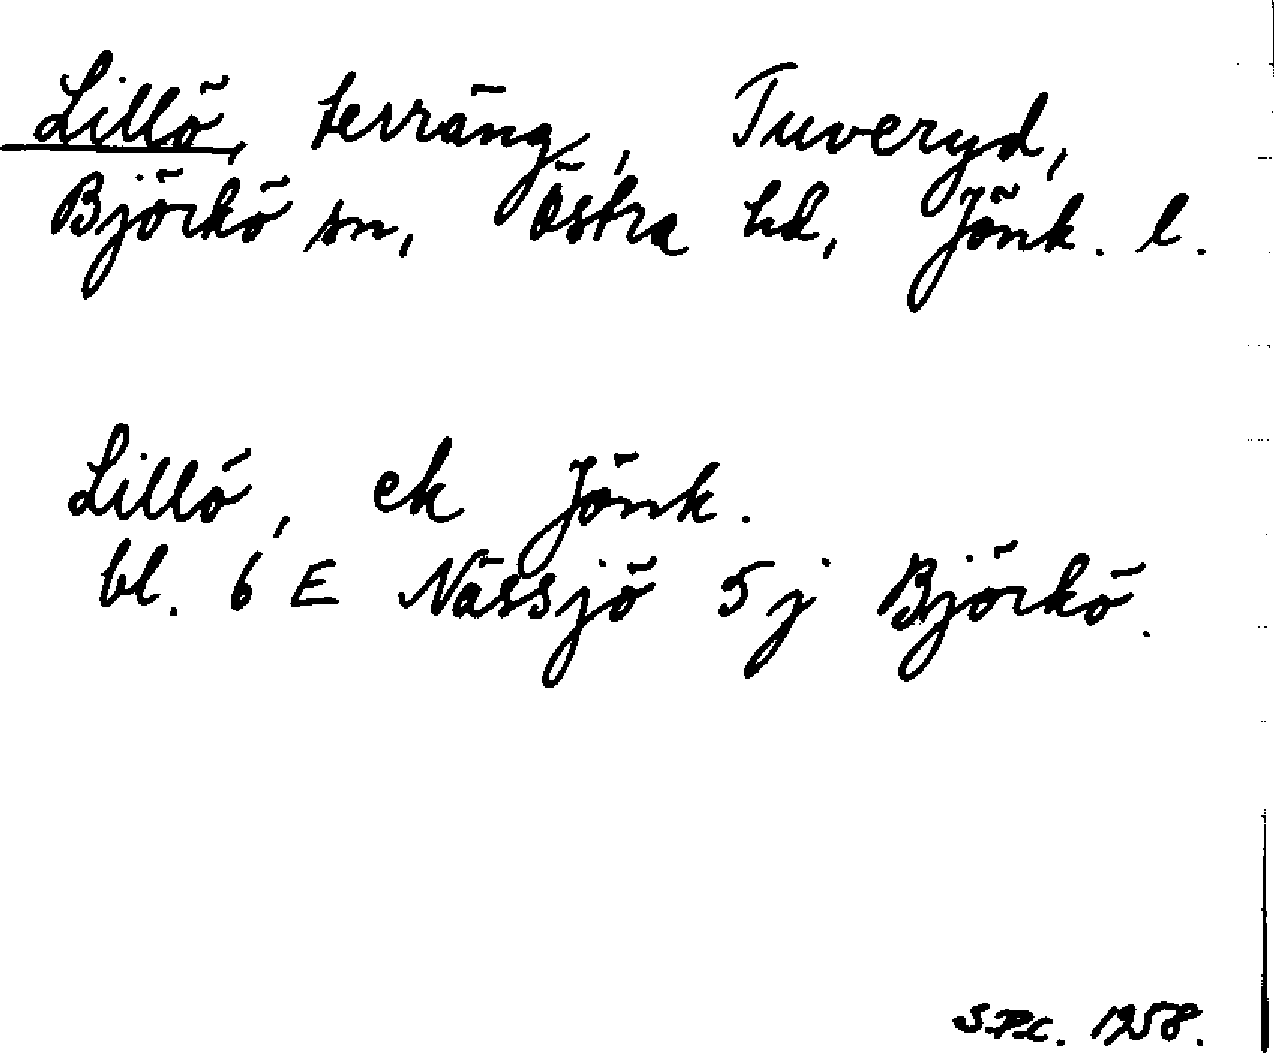 Lillö, terräng, Tuveryd,
Björkö sn, Östra hd, Jönk. l.
Lillö, ek Jönk.
bl. 6 E Nässjö 5 j Björkö.
1958.